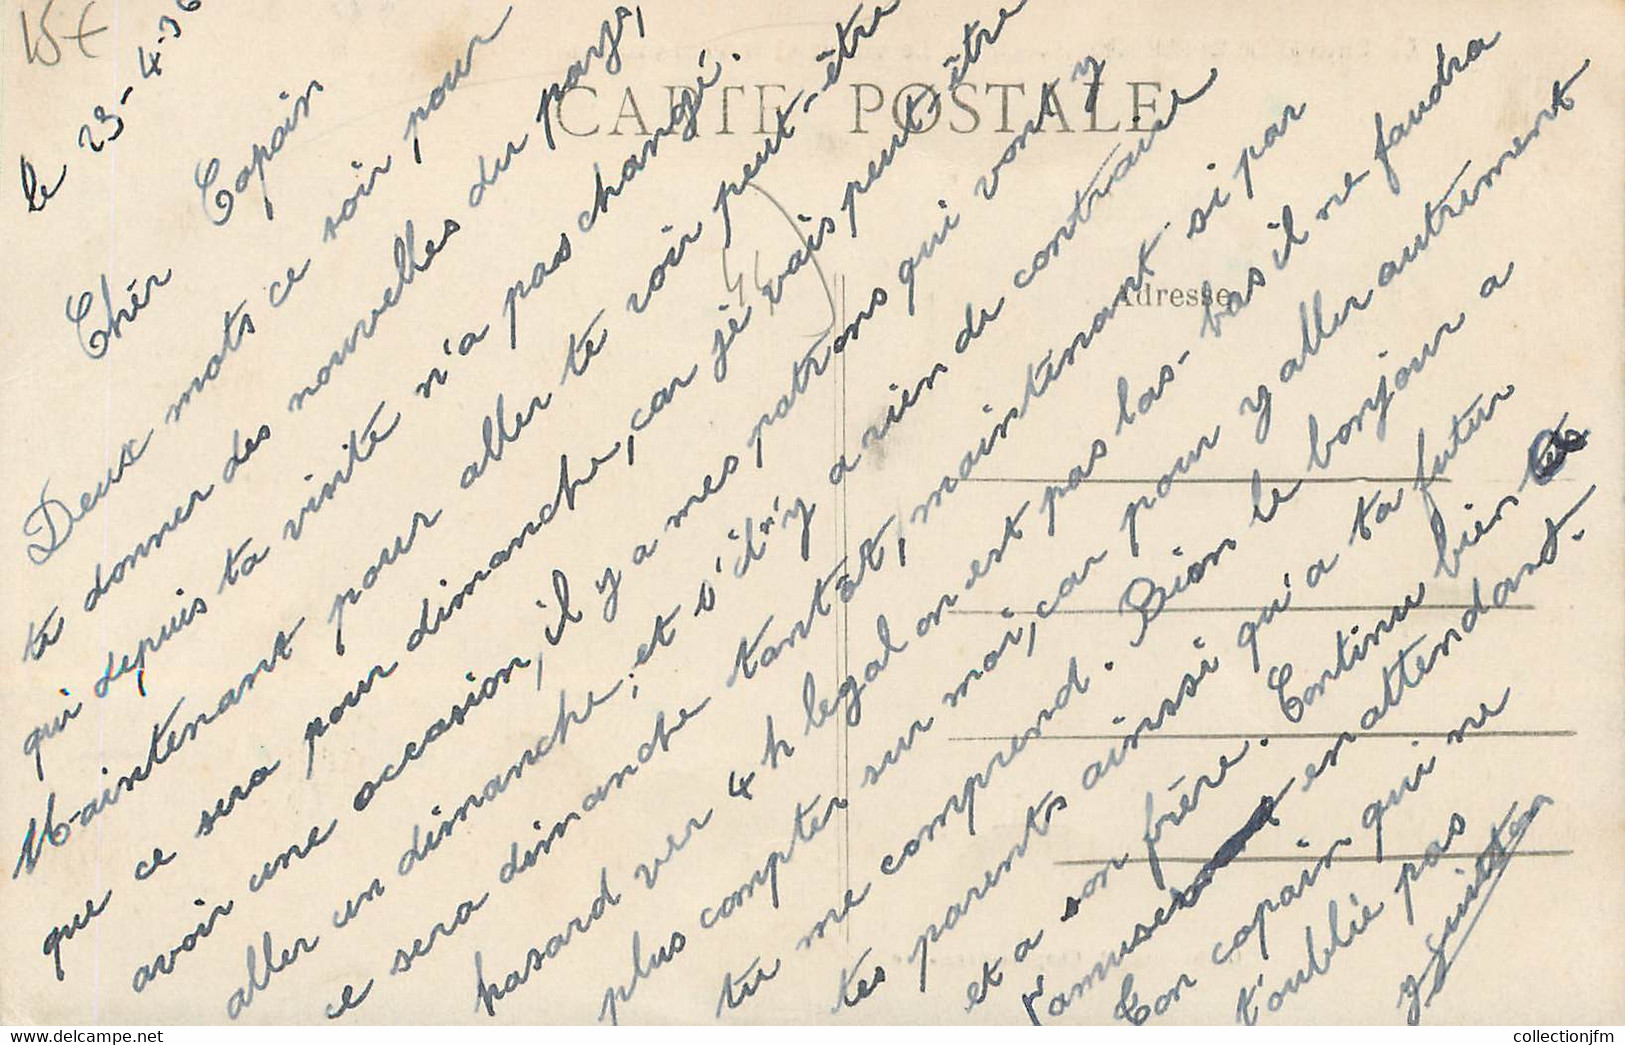 15€
CARTE POSTALE
Adresse
le 23-4-36
Chér Copain
Deux mots ce soir pour
te donner des nouvelles du pays,
qui depuis ta visite n'a pas changé.
Maintenant pour aller te voir peut-être
que ce sera pour dimanche, car je vais peut-être
avoir une occasion, il y a mes patrons qui vont y
aller un dimanche, et s'il n'y a rien de contraire
ce sera dimanche tantôt, maintenant si par
hasard ver 4h legal on est pas las-bas il ne faudra
plus compter sur moi, car pour y aller autrement
tu me comprend. Bien le bonjour a
tes parents ainsi qu'a ta futur
et a son frère. Continu bien
t'amuse en attendant.
Ton copain qui ne
t'oublie pas
collectionjfm